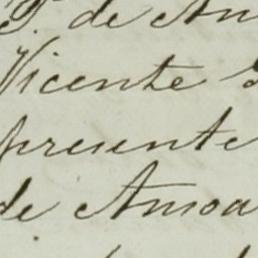 de An
Vicente
presente
de Amoa